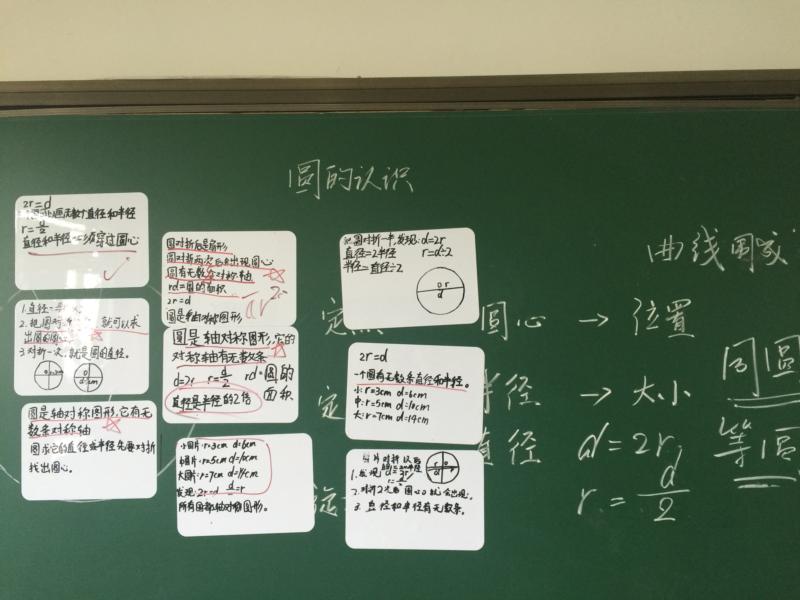 圆的认识
2r=d
直径和半径
直径和半径必须穿过圆心
1.直径
2.把圆对
就可以求
出圆的圆
3.对折一次,就是圆的直径。
圆是轴对称图形,它有无
数条对称轴
图求它的直径或半径先要对折
找出圆心。
圆对折后是扇形
圆对折两次后出现圆心
圆有无数条对称轴
rd=圆的面积
2r=d
圆是轴对称图形
圆是轴对称图形,它的
对称轴有无数条
d=2r r=d/2 rd=圆的
面积
直径是半径的2倍
小圆片:r=3cm d=6cm
中圆片:r=5cm d=10cm
大圆片:r=7cm d=14cm
发现:2r=d d/2=r
所有圆都轴对称图形。
把圆对折一半,发现:d=2r
直径=2半径 r=d÷2
半径=直径÷2
o r
d
2r=d
一个圆有无数条直径和半径。
小:r=3cm d=6cm
中:r=5cm d=10cm
大:r=7cm d=14cm
1.发现
2.对折2次后 圆心o就会出现。
3.直径和半径有无数条。
曲线图
定 圆心 → 位置
定 半径 → 大小
直径 d=2r,
r=d/2
同圆
等圆